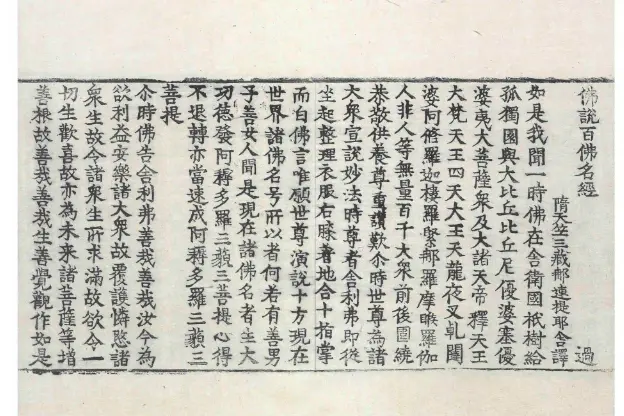 佛說百佛名經 過
隋天竺三藏那連提耶舍譯
如是我聞一時佛在舍衛國祇樹給
孤獨園與大比丘比丘尼優婆塞優
婆夷大菩薩衆及大諸天帝釋天王
大梵天王四天大王天龍夜叉乹闥
婆阿修羅迦樓羅緊那羅摩睺羅伽
人非人等無量百千大衆前後圍繞
恭敬供養尊重讚歎尒時世尊為諸
大衆宣說妙法時尊者舍利弗即從
坐起整理衣服右膝着地合十指掌
而白佛言唯願世尊演說十方現在
世界諸佛名号所以者何若有善男
子善女人聞是現在諸佛名者生大
功德發阿耨多羅三藐三菩提心得
不退轉亦當速成阿耨多羅三藐三
菩提
尒時佛告舍利弗善哉善哉汝今為
欲利益安樂諸大衆故覆護憐愍諸
衆生故令諸衆生所求滿故欲令一
切生歡喜故亦為未來諸菩薩等增
善根故善哉善哉生善覺觀作如是